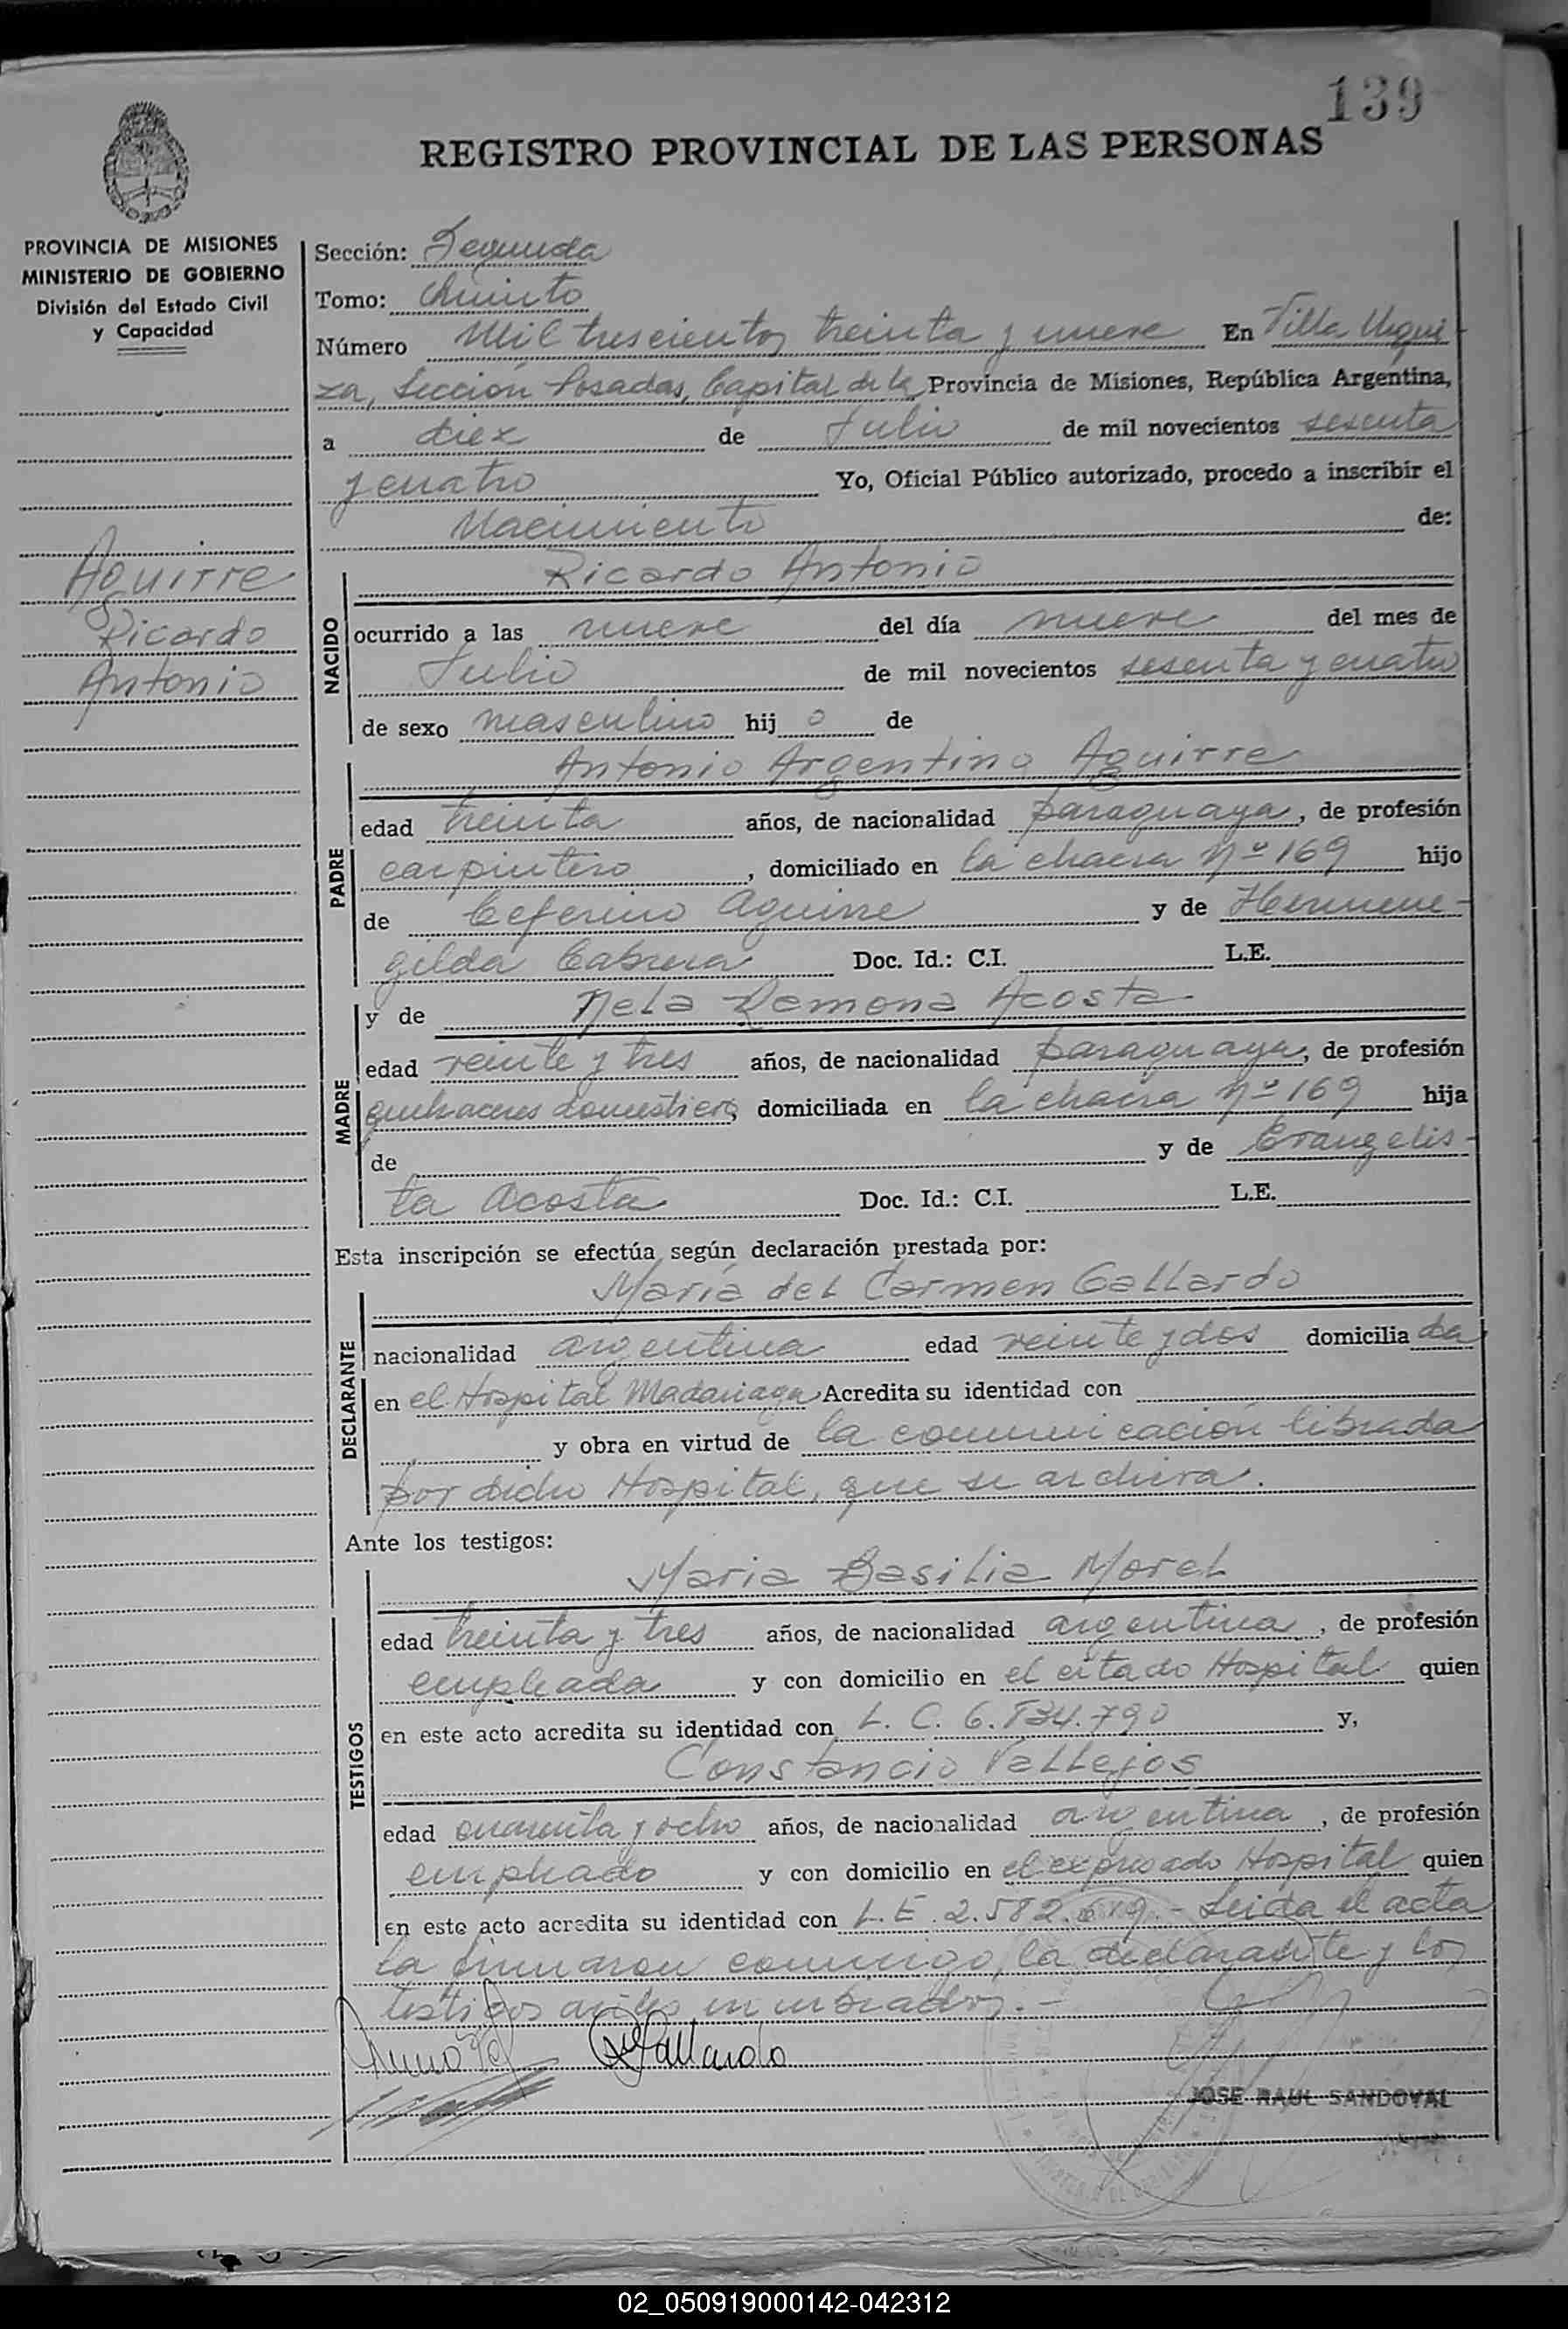 139
REGISTRO PROVINCIAL DE LAS PERSONAS
PROVINCIA DE MISIONES
MINISTERIO DE GOBIERNO
División del Estado Civil
y Capacidad
Aguirre
Ricardo
Antonio
Sección: Segunda
Tomo: Quinto
Número Mil trescientos treinta y nueve En Villa Urqui
za, Sección Posadas, Capital de la Provincia de Misiones, República Argentina,
a diez de Julio de mil novecientos sesenta
y cuatro Yo, Oficial Público autorizado, procedo a inscribir el
Nacimiento de:
NACIDO
Ricardo Antonio
ocurrido a las nueve del día nueve del mes de
Julio de mil novecientos sesenta y cuatro
de sexo masculino hij o de
PADRE
Antonio Argentino Aguirre
edad treinta años, de nacionalidad paraguaya, de profesión
carpintero, domiciliado en la chacra Nº 169 hijo
de Ceferino Aguirre y de Hermene-
gilda Cabrera Doc. Id.: C.I. L.E.
MADRE
y de Nela Ramona Acosta
edad veinte y tres años, de nacionalidad paraguaya, de profesión
quehaceres domesticos, domiciliada en la chacra Nº 169 hija
de y de Evangelis-
ta Acosta Doc. Id.: C.I. L.E.
Esta inscripción se efectúa según declaración prestada por:
DECLARANTE
María del Carmen Gallardo
nacionalidad argentina edad veinte y dos domicilia da
en el Hospital Madariaga Acredita su identidad con
y obra en virtud de la comunicación librada
por dicho Hospital, que se archiva.
Ante los testigos:
TESTIGOS
Maria Basilia Morel
edad treinta y tres años, de nacionalidad argentina, de profesión
empleada y con domicilio en el citado Hospital quien
en este acto acredita su identidad con L. C. 6.834.790 y,
Constancio Vallejos
edad cuarenta y ocho años, de nacionalidad argentina, de profesión
empleado y con domicilio en el expresado Hospital quien
en este acto acredita su identidad con L.E. 2.582. - Leida el acta
la firmaron conmigo, la declarante y los
testigos nombrados.-
Gallardo
JOSE RAUL SANDOVAL
02_050919000142-042312